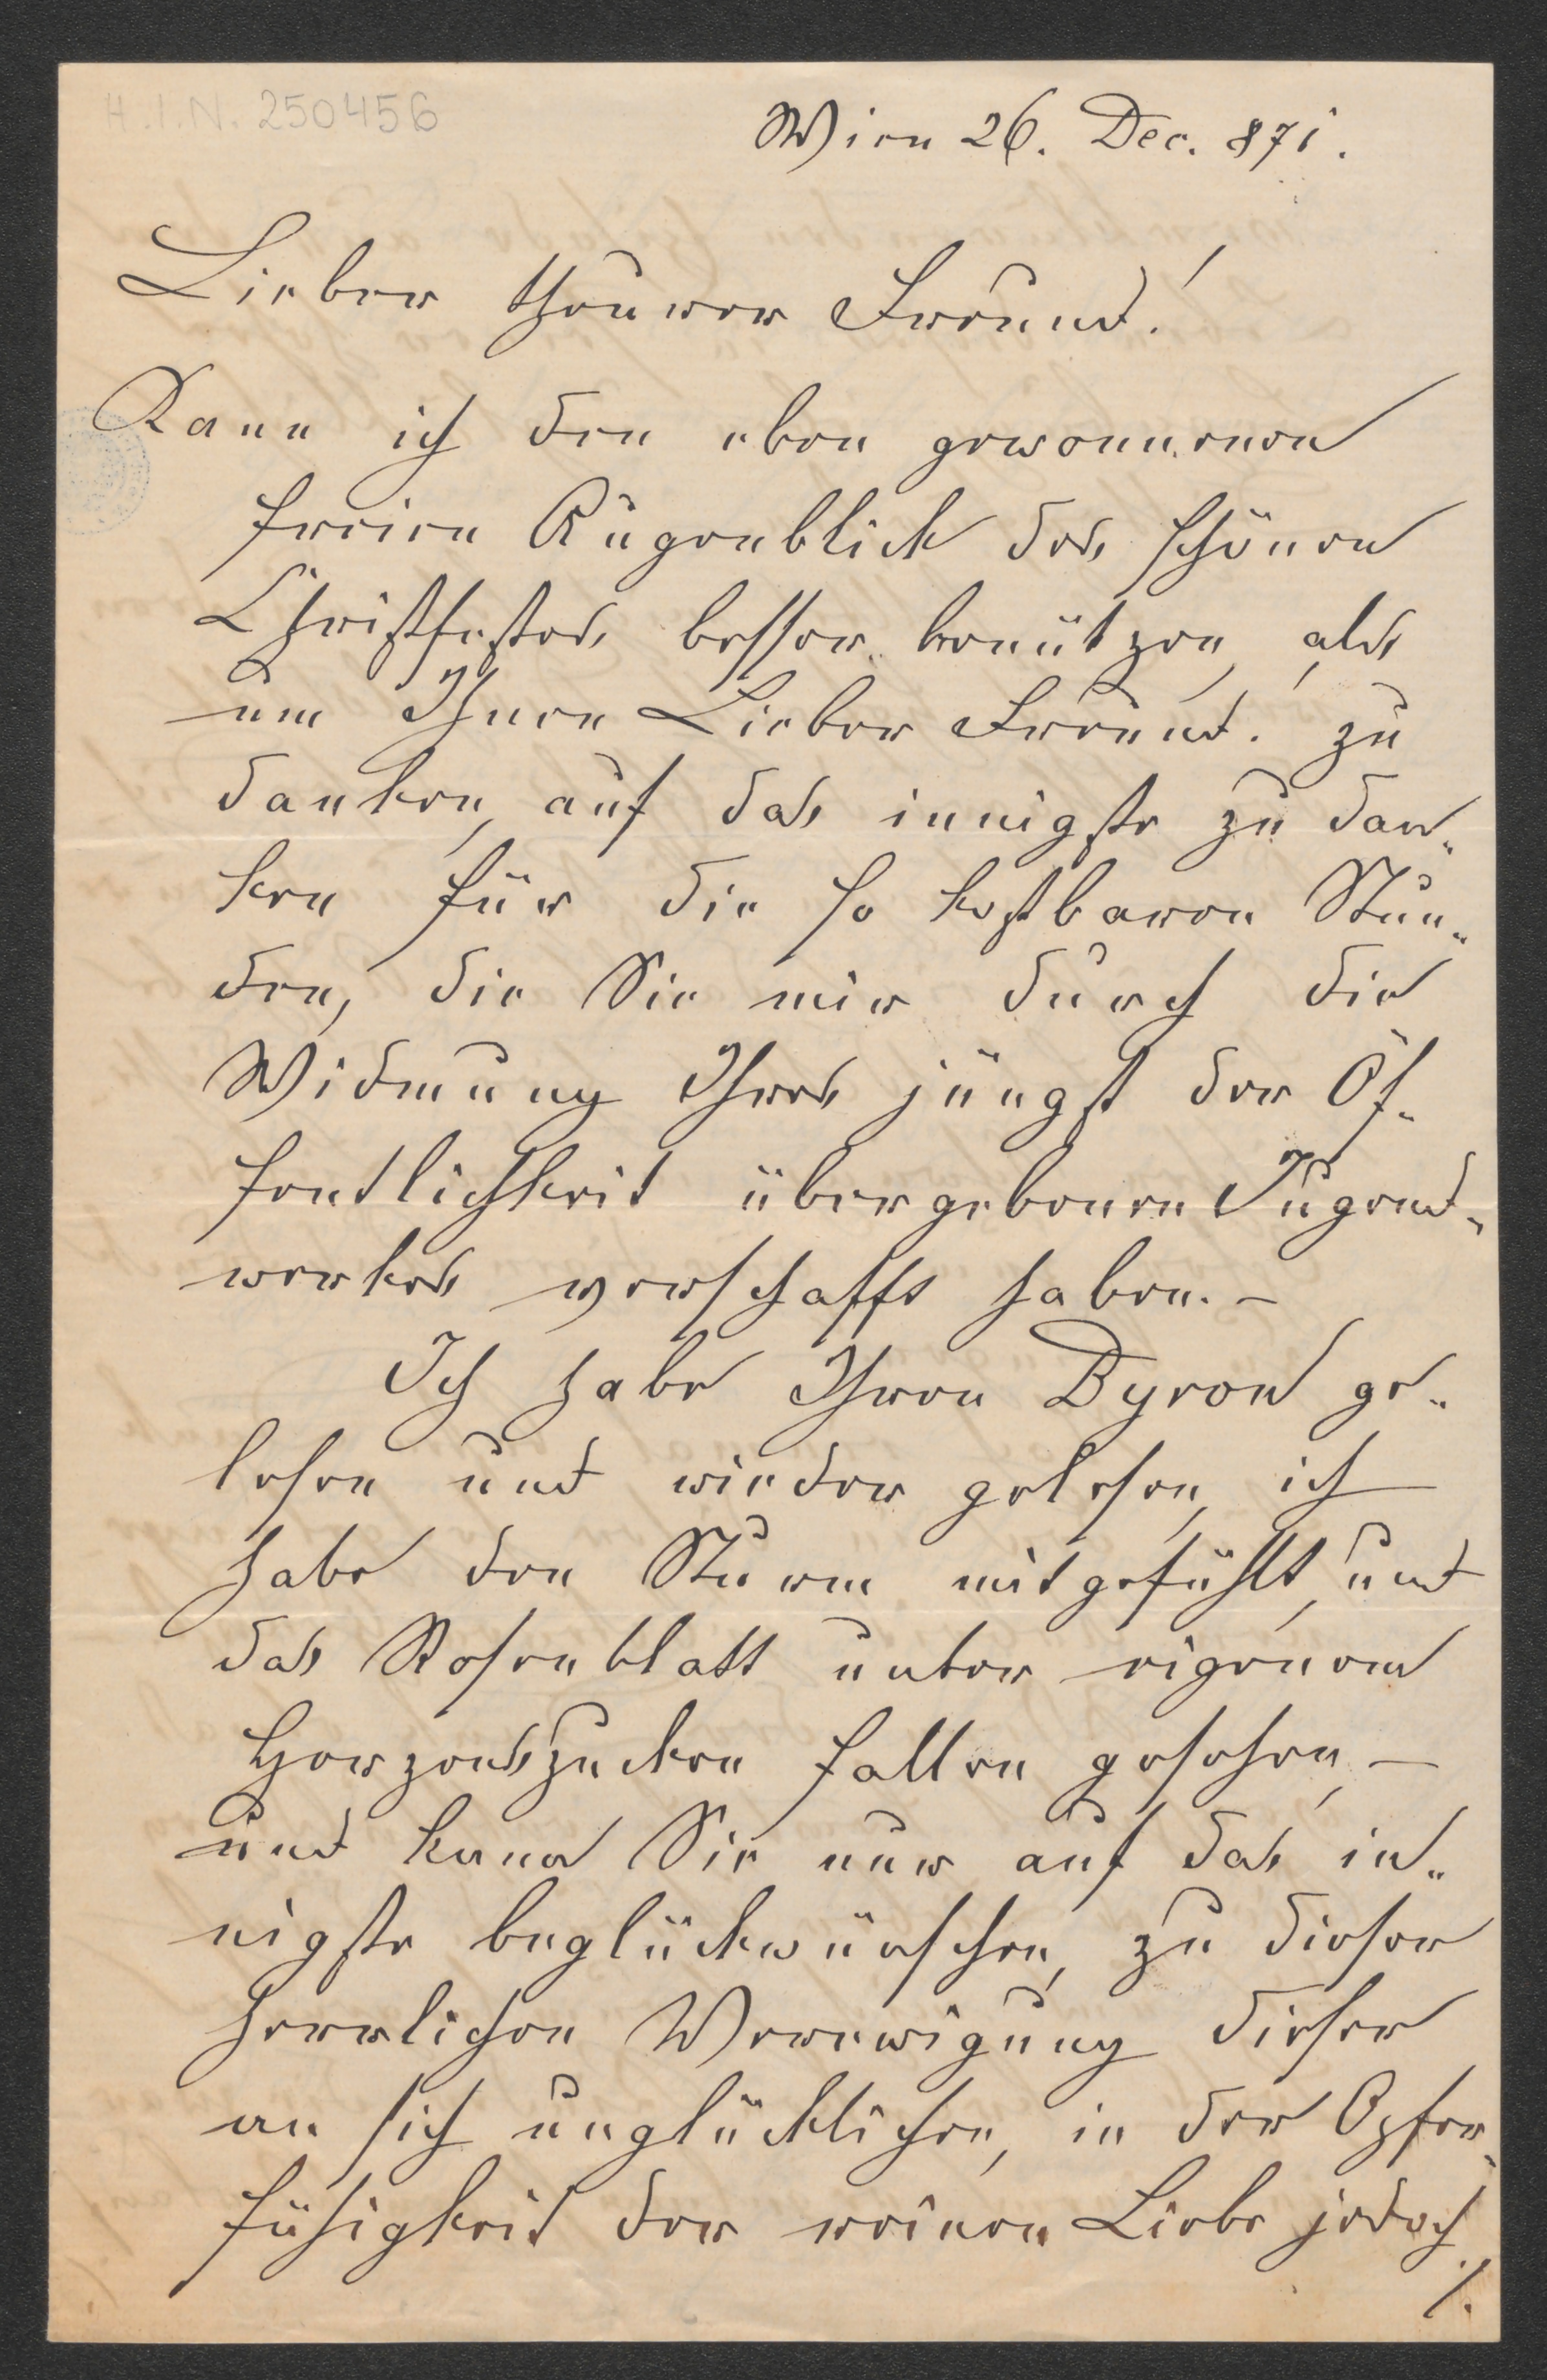 H.I.N. 250456
Wien 26. Dec. 871.
Lieber theurer Freund!
Kann ich den eben gewonnenen
freien Augenblick des schönen
Christfestes besser benützen, als
um Ihnen Lieber Freund! zu
danken, auf das innigste zu dan„
ken für die so kostbaren Stun„
den, die Sie mir durch die
Widmung Ihres jüngst der Öf„
fentlichkeit übergebenen Jugend„
werkes verschafft haben. –
Ich habe Ihren Byron ge„
lesen und wieder gelesen, ich
habe den Sturm mitgefühlt, und
das Rosenblatt unter eigenem
Herzenszucken fallen gesehen, –
und kann Sie nur auf das in„
nigste beglückwünschen, zu dieser
herrlichen Verewigung dieser
an sich unglücklichen, in der Opfer„
fähigkeit der reinen Liebe jedoch
./.